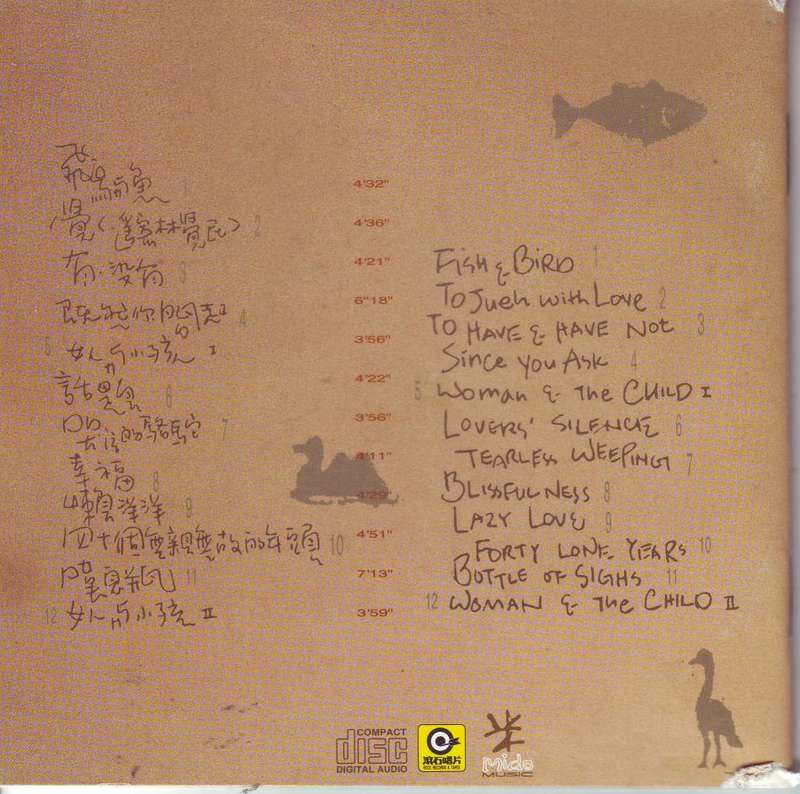 飛鳥与魚 1 4'32"
覺(遙寄林覺民) 2 4'36"
有·沒有 3 4'21"
既然你問起 4 6"18"
5 女人与小孩 I 3'56"
話 6 4'22"
哭泣的駱駝 7 3'56"
幸福 8 4'11"
懶洋洋 9 4'29"
四十個無親無故的年頭 10 4'51"
嘆息瓶 11 7'13"
12 女人与小孩 II 3'59"
FISH & BIRD 1
TO Jueh with LOVE 2
TO HAVE & HAVE NOT 3
Since you ASK 4
5 WOMAN & the CHILD I
LOVERS' SILENCE 6
TEARLESS WEEPING 7
BLISSFULNESS 8
LAZY LOVE 9
FORTY LONE YEARS 10
BOTTLE OF SIGHS 11
12 WOMAN & the CHILD II
COMPACT
disc
DIGITAL AUDIO
滾石唱片
ROCK RECORDS & TAPES
mido
MUSIC